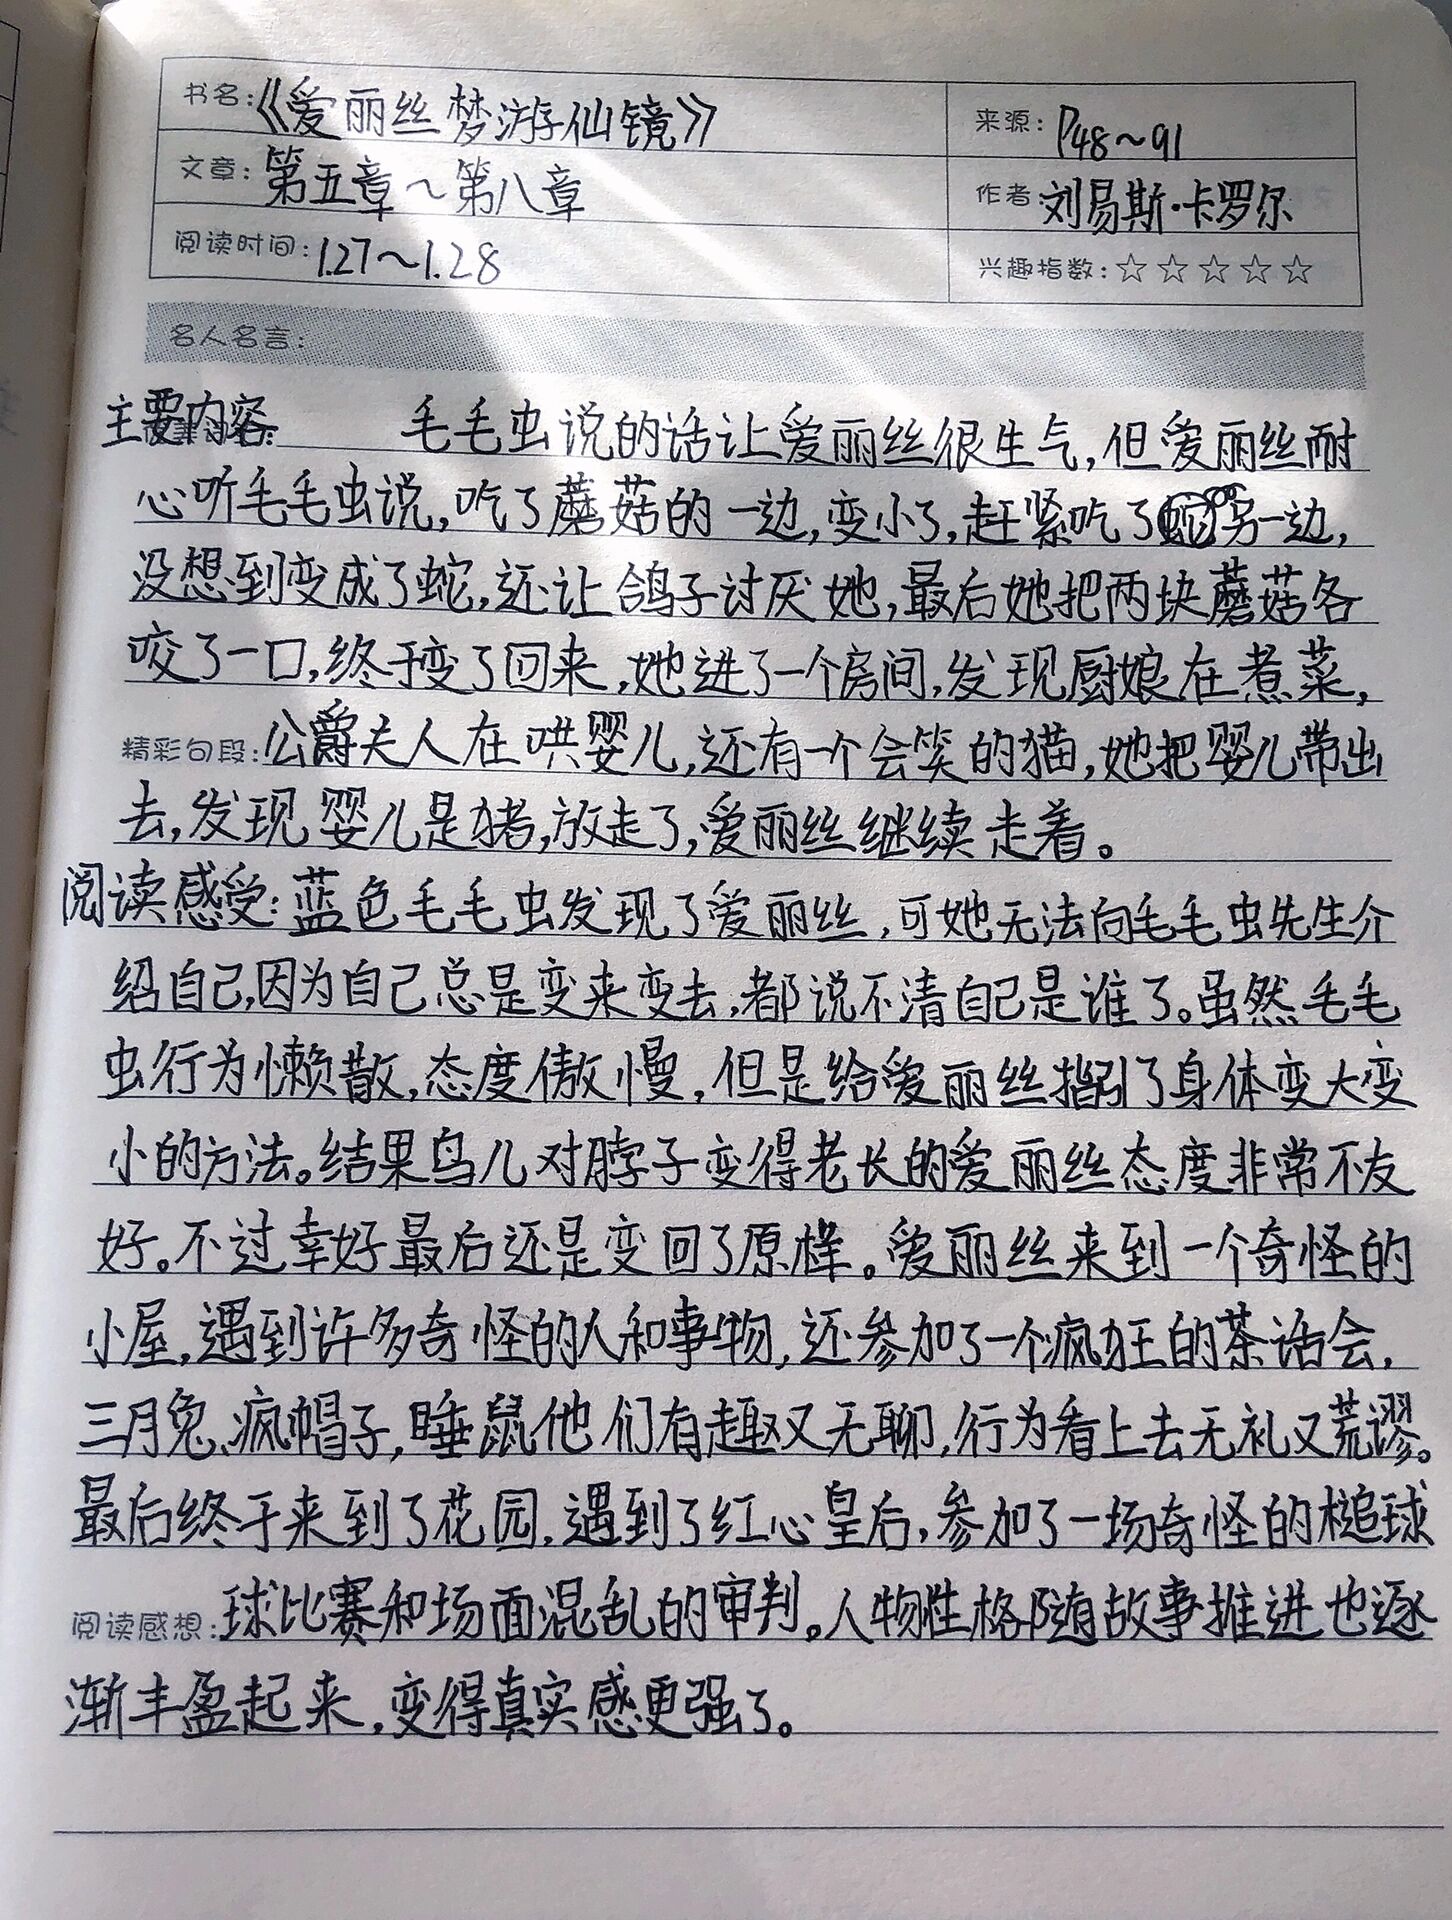 书名:《爱丽丝梦游仙镜》
来源: P48~91
文章: 第五章~第八章
作者: 刘易斯·卡罗尔
阅读时间: 1.27~1.28
兴趣指数: ☆☆☆☆☆
名人名言:
主要内容: 毛毛虫说的话让爱丽丝很生气,但爱丽丝耐
心听毛毛虫说,吃了蘑菇的一边,变小了,赶紧吃了另一边,
没想到变成了蛇,还让鸽子讨厌她,最后她把两块蘑菇各
咬了一口,终于变了回来,她进了一个房间,发现厨娘在煮菜,
精彩句段: 公爵夫人在哄婴儿,还有一个会笑的猫,她把婴儿带出
去,发现婴儿是猪,放走了,爱丽丝继续走着。
阅读感受: 蓝色毛毛虫发现了爱丽丝,可她无法向毛毛虫先生介
绍自己,因为自己总是变来变去,都说不清自己是谁了。虽然毛毛
虫行为懒散,态度傲慢,但是给爱丽丝指引了身体变大变
小的方法。结果鸟儿对脖子变得老长的爱丽丝态度非常不友
好。不过幸好最后还是变回了原样。爱丽丝来到一个奇怪的
小屋,遇到许多奇怪的人和事物,还参加了一个疯狂的茶话会,
三月兔、疯帽子,睡鼠他们有趣又无聊,行为看上去无礼又荒谬。
最后终于来到了花园,遇到了红心皇后,参加了一场奇怪的槌球
阅读感想: 球比赛和场面混乱的审判。人物性格随故事推进也逐
渐丰盈起来,变得真实感更强了。